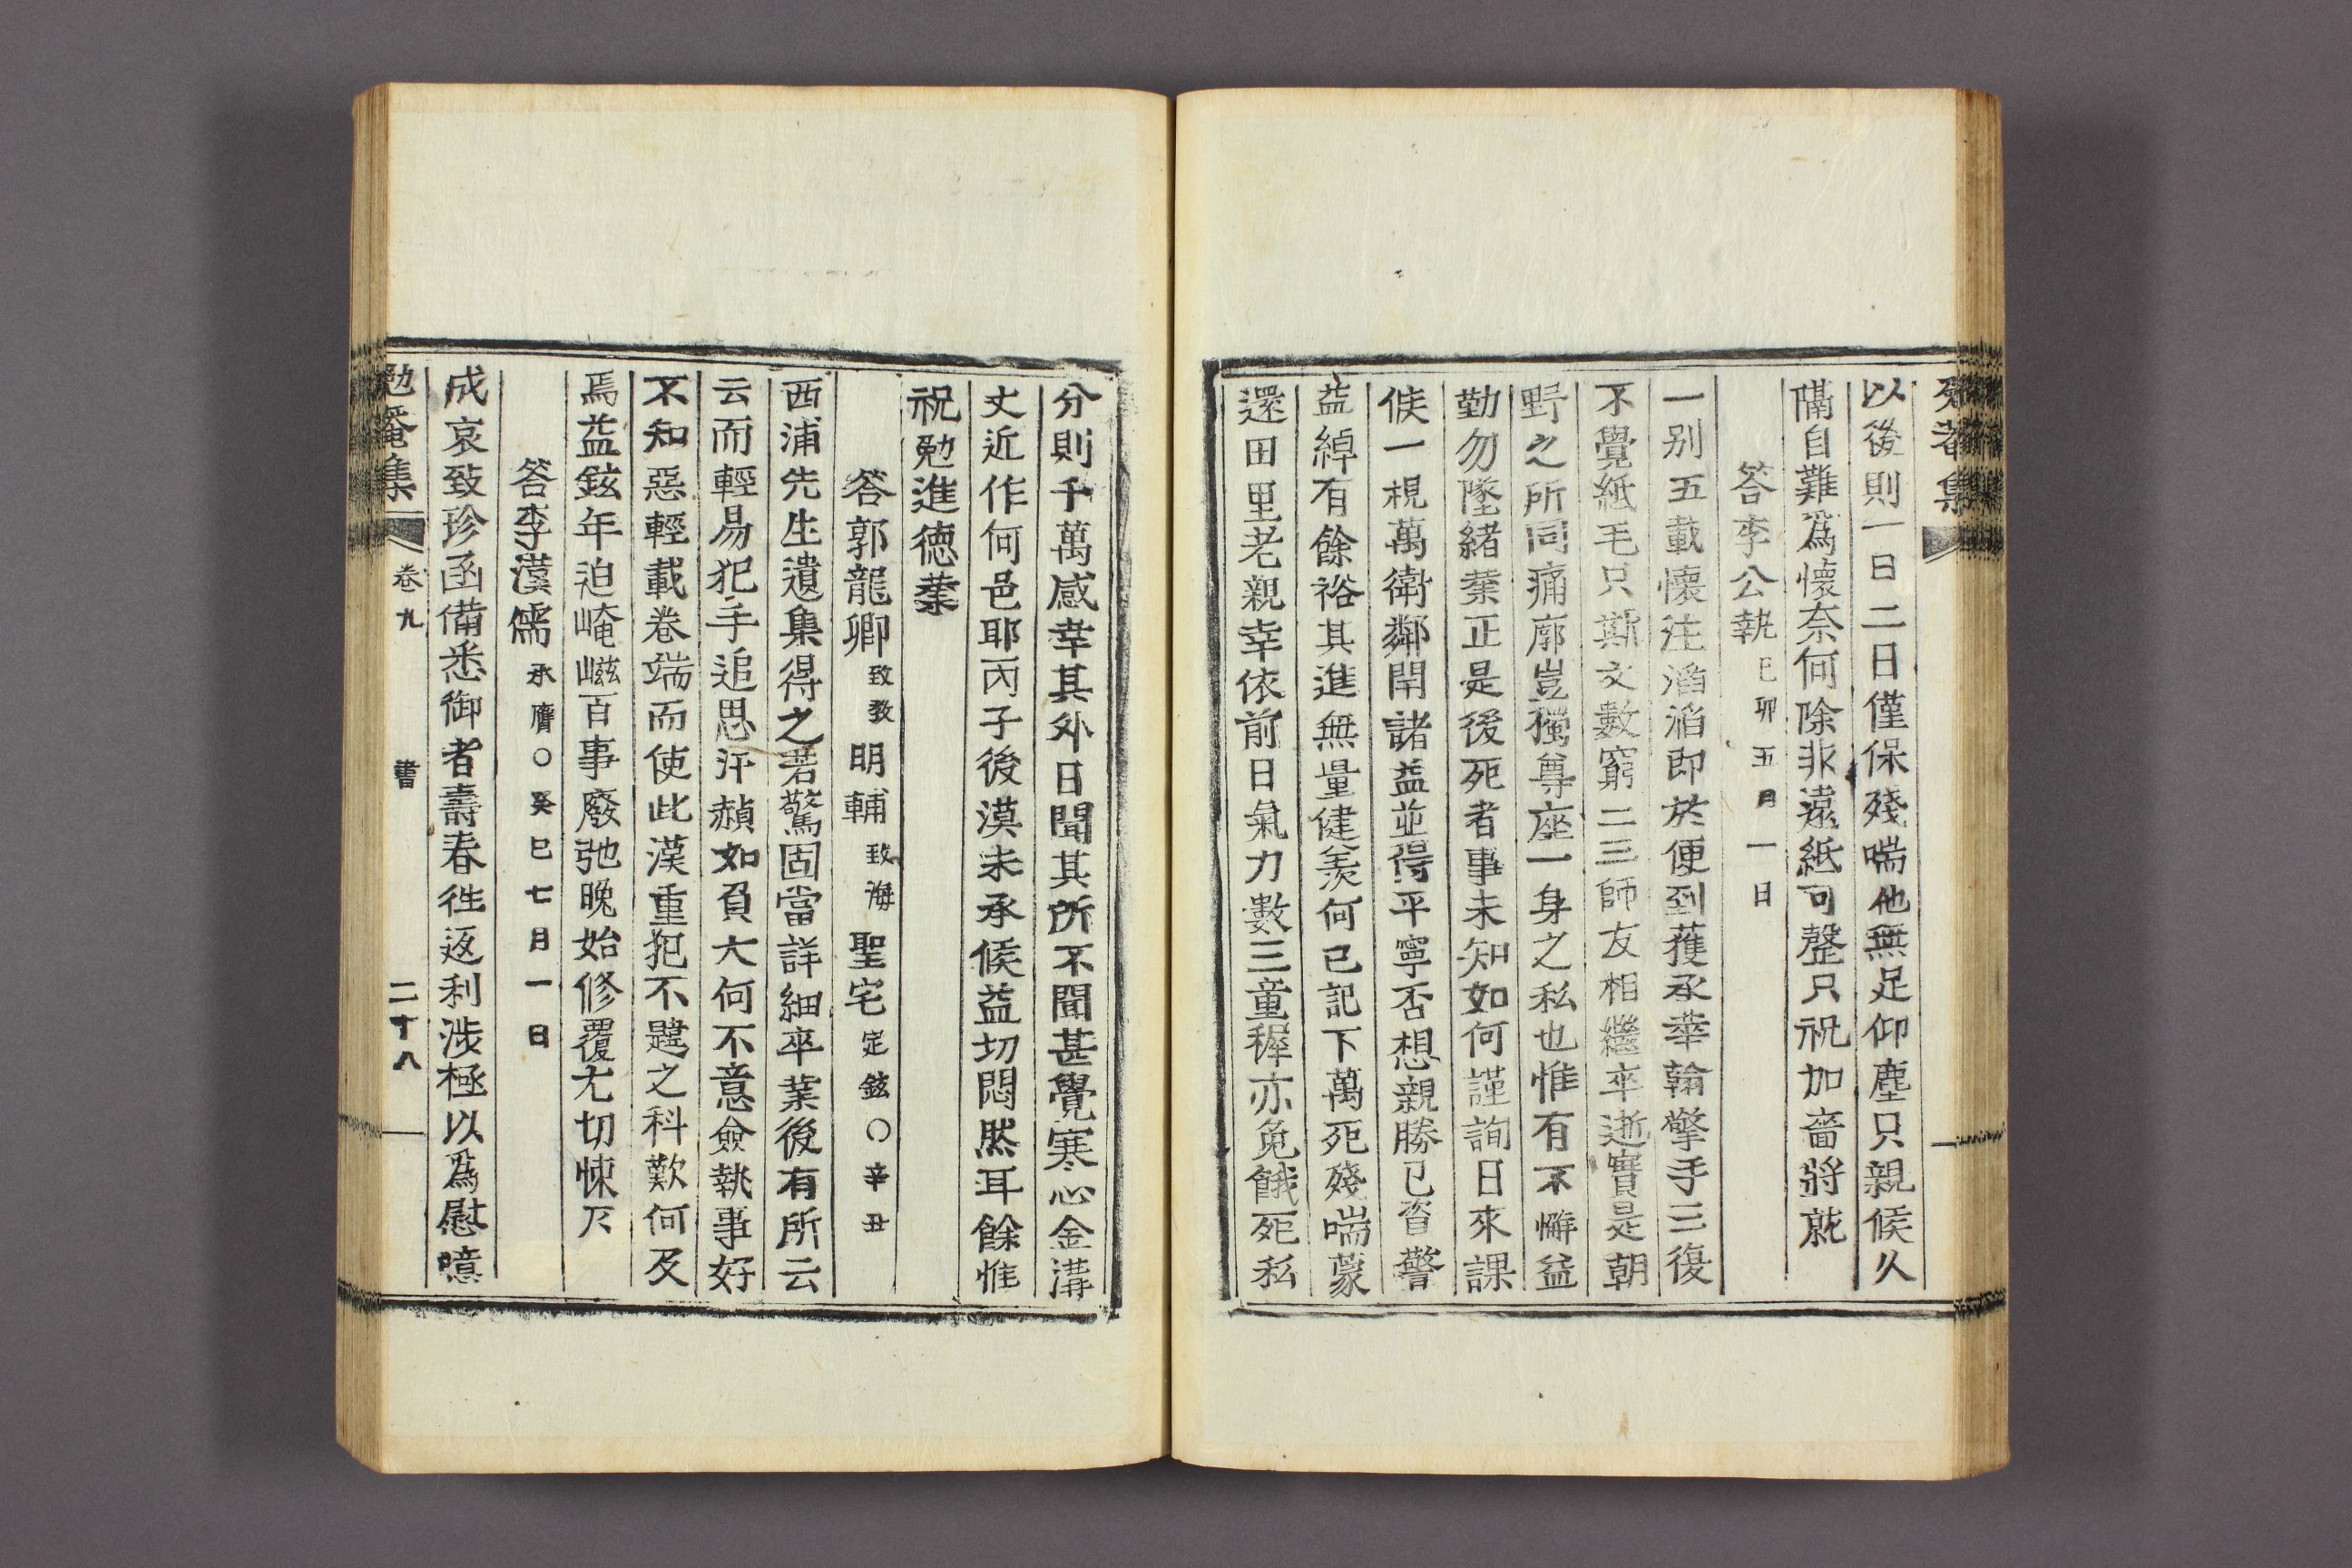 以後則一日二日僅保殘喘他無足仰塵只親候久
隔自難爲懷奈何除非遠紙可罄只祝加嗇將就
答李公執 己卯五月一日
一别五載懷注滔滔即於便到獲承華翰擎手三復
不覺紙毛只斯文數窮二三師友相繼卒逝實是朝
野之所同痛廓豈獨尊座一身之私也惟有不懈益
勤勿墜緖業正是後死者事未知如何謹詢日來課
候一視萬衛鄰閈諸益並得平寧否想親勝已沓警
益綽有餘裕其進無量健羨何已記下萬死殘喘蒙
還田里老親幸依前日氣力數三童穉亦免餓死私
分則千萬感幸其外日聞其所不聞甚覺寒心金溝
丈近作何邑耶丙子後漠未承候益切悶然耳餘惟
祝勉進德業
答郭龍卿 致敎 明輔 致海 聖宅 定鉉○辛丑
西浦先生遺集得之若驚固當詳細卒業後有所云
云而輕易犯手追思汗赬如負大何不意僉執事好
不知惡輕載卷端而使此漢重犯不韙之科歎何及
焉益鉉年迫崦嵫百事廢弛晚始修覆尤切悚仄
答李漢儒 承膺○癸巳七月一日
成哀致珍函備悉御者壽春徃返利涉極以爲慰噫
勉菴集 卷九 書 二十八